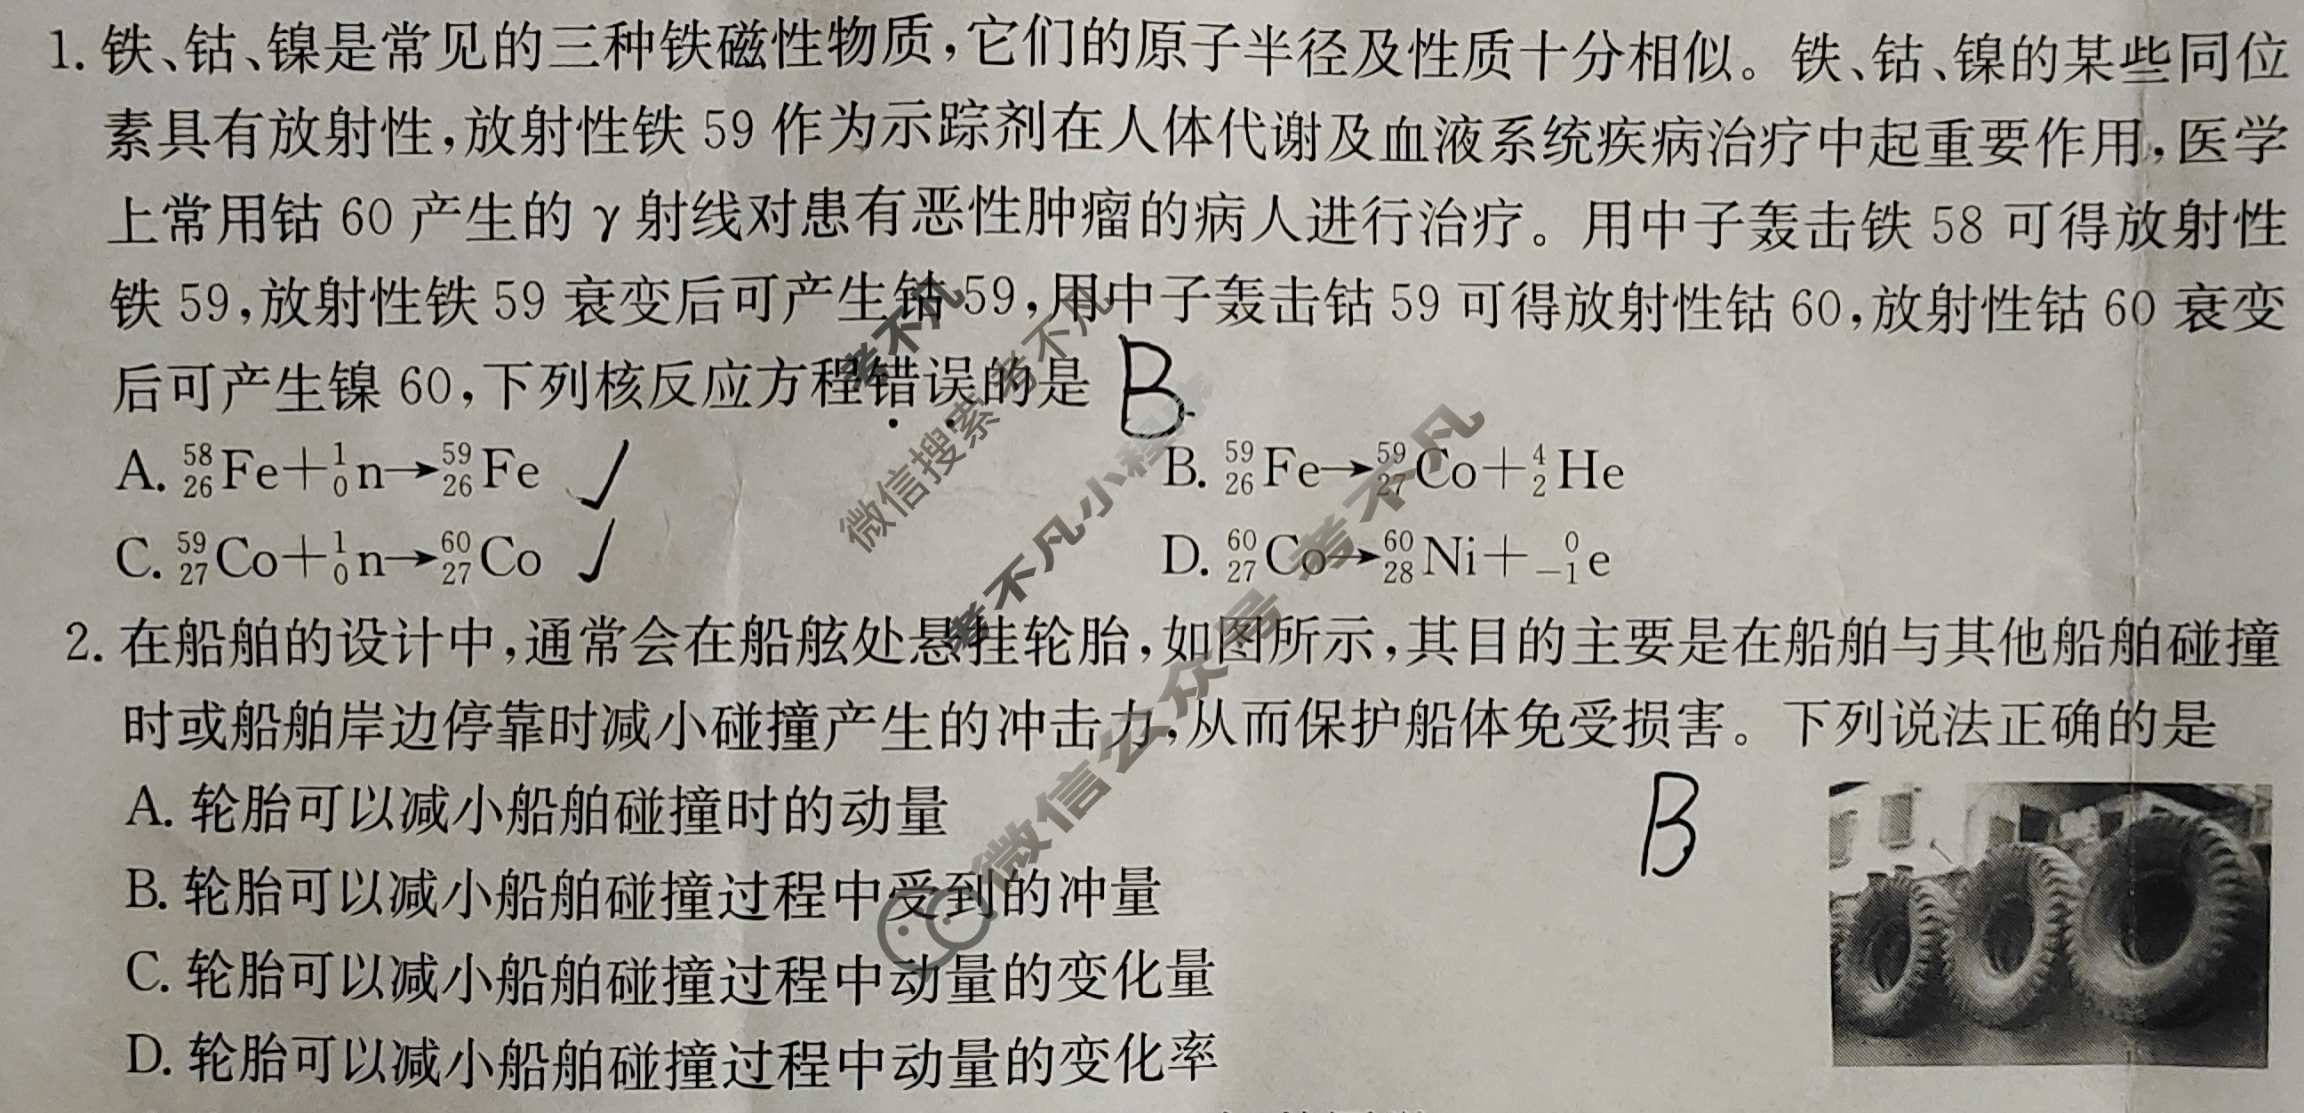 1. 铁、钴、镍是常见的三种铁磁性物质,它们的原子半径及性质十分相似。铁、钴、镍的某些同位
素具有放射性,放射性铁 59 作为示踪剂在人体代谢及血液系统疾病治疗中起重要作用,医学
上常用钴 60 产生的 γ 射线对患有恶性肿瘤的病人进行治疗。用中子轰击铁 58 可得放射性
铁 59,放射性铁 59 衰变后可产生钴 59,用中子轰击钴 59 可得放射性钴 60,放射性钴 60 衰变
后可产生镍 60,下列核反应方程错误的是 B
A. ⁵⁸₂₆Fe+¹₀n→⁵⁹₂₆Fe ✓ B. ⁵⁹₂₆Fe→⁵⁹₂₇Co+⁴₂He
C. ⁵⁹₂₇Co+¹₀n→⁶⁰₂₇Co ✓ D. ⁶⁰₂₇Co→⁶⁰₂₈Ni+⁰₋₁e
2. 在船舶的设计中,通常会在船舷处悬挂轮胎,如图所示,其目的主要是在船舶与其他船舶碰撞
时或船舶岸边停靠时减小碰撞产生的冲击力,从而保护船体免受损害。下列说法正确的是
B
A. 轮胎可以减小船舶碰撞时的动量
B. 轮胎可以减小船舶碰撞过程中受到的冲量
C. 轮胎可以减小船舶碰撞过程中动量的变化量
D. 轮胎可以减小船舶碰撞过程中动量的变化率
考不凡
微信搜索 考不凡
考不凡小程序
微信公众号 考不凡